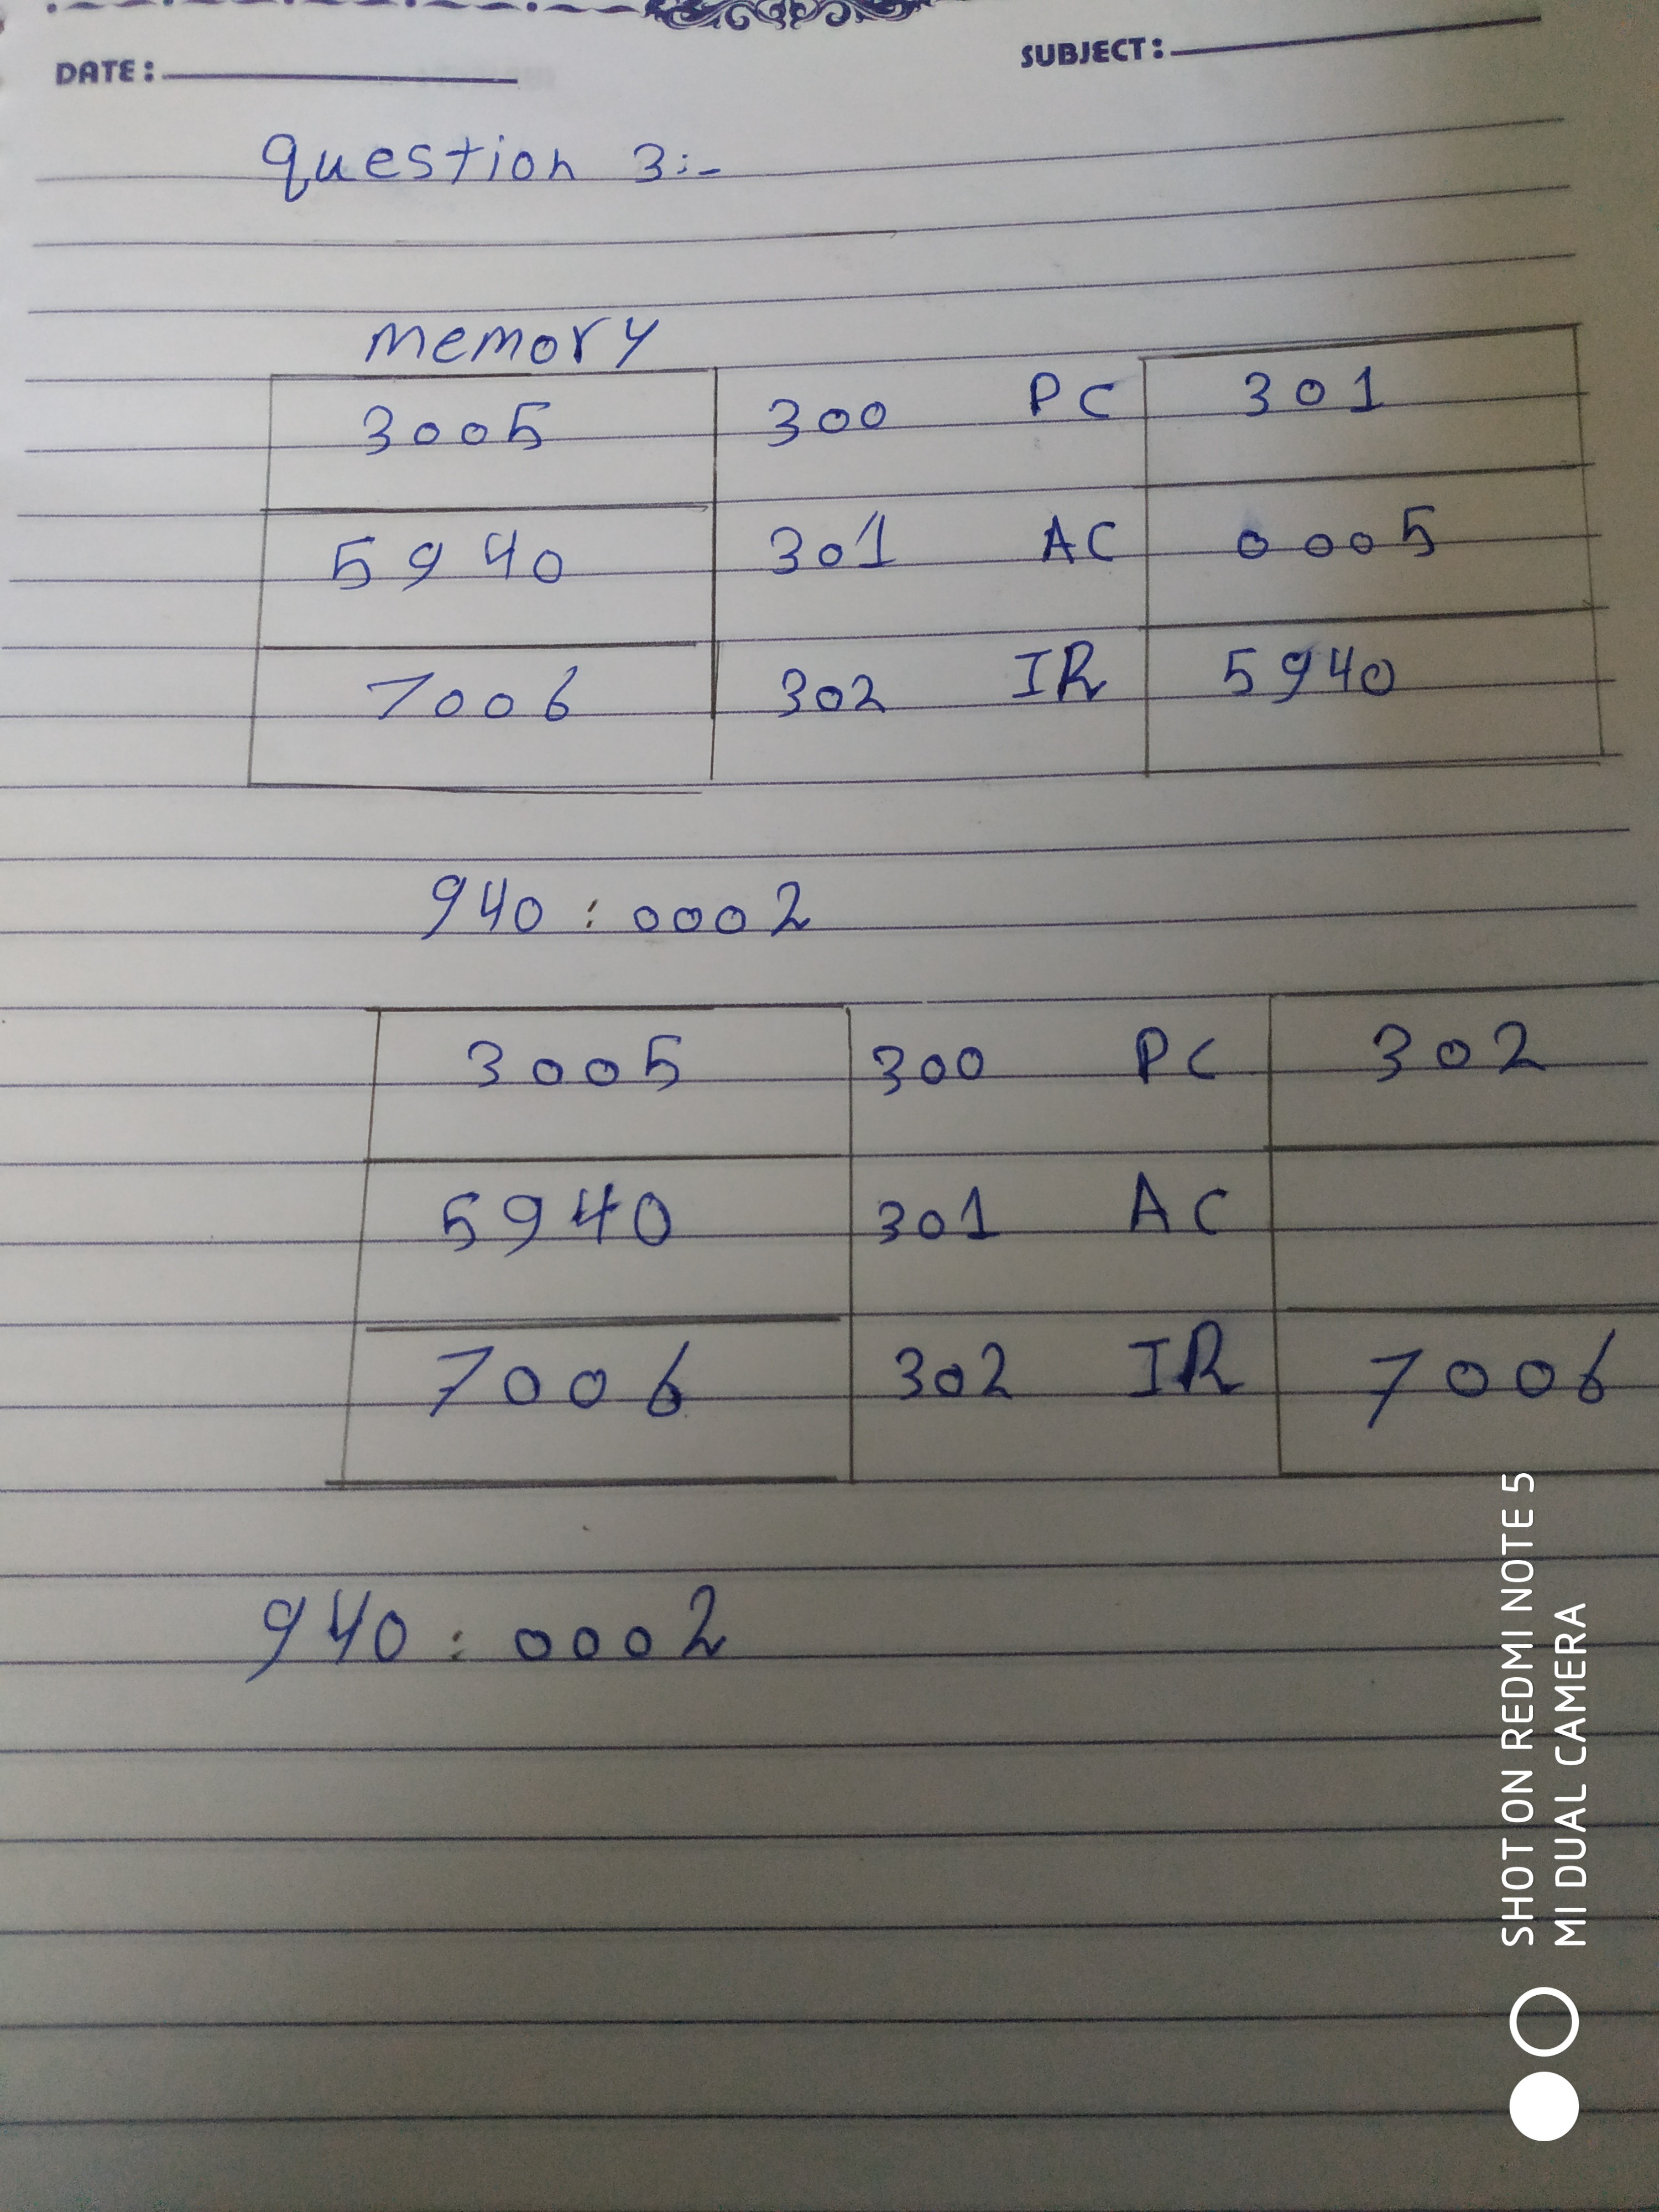 DATE: SUBJECT:
question 3:-
memory
3005 300 PC 301
5940 301 AC 0005
7006 302 IR 5940
940 : 0002
3005 300 PC 302
5940 301 AC
7006 302 IR 7006
940 : 0002
SHOT ON REDMI NOTE 5
MI DUAL CAMERA